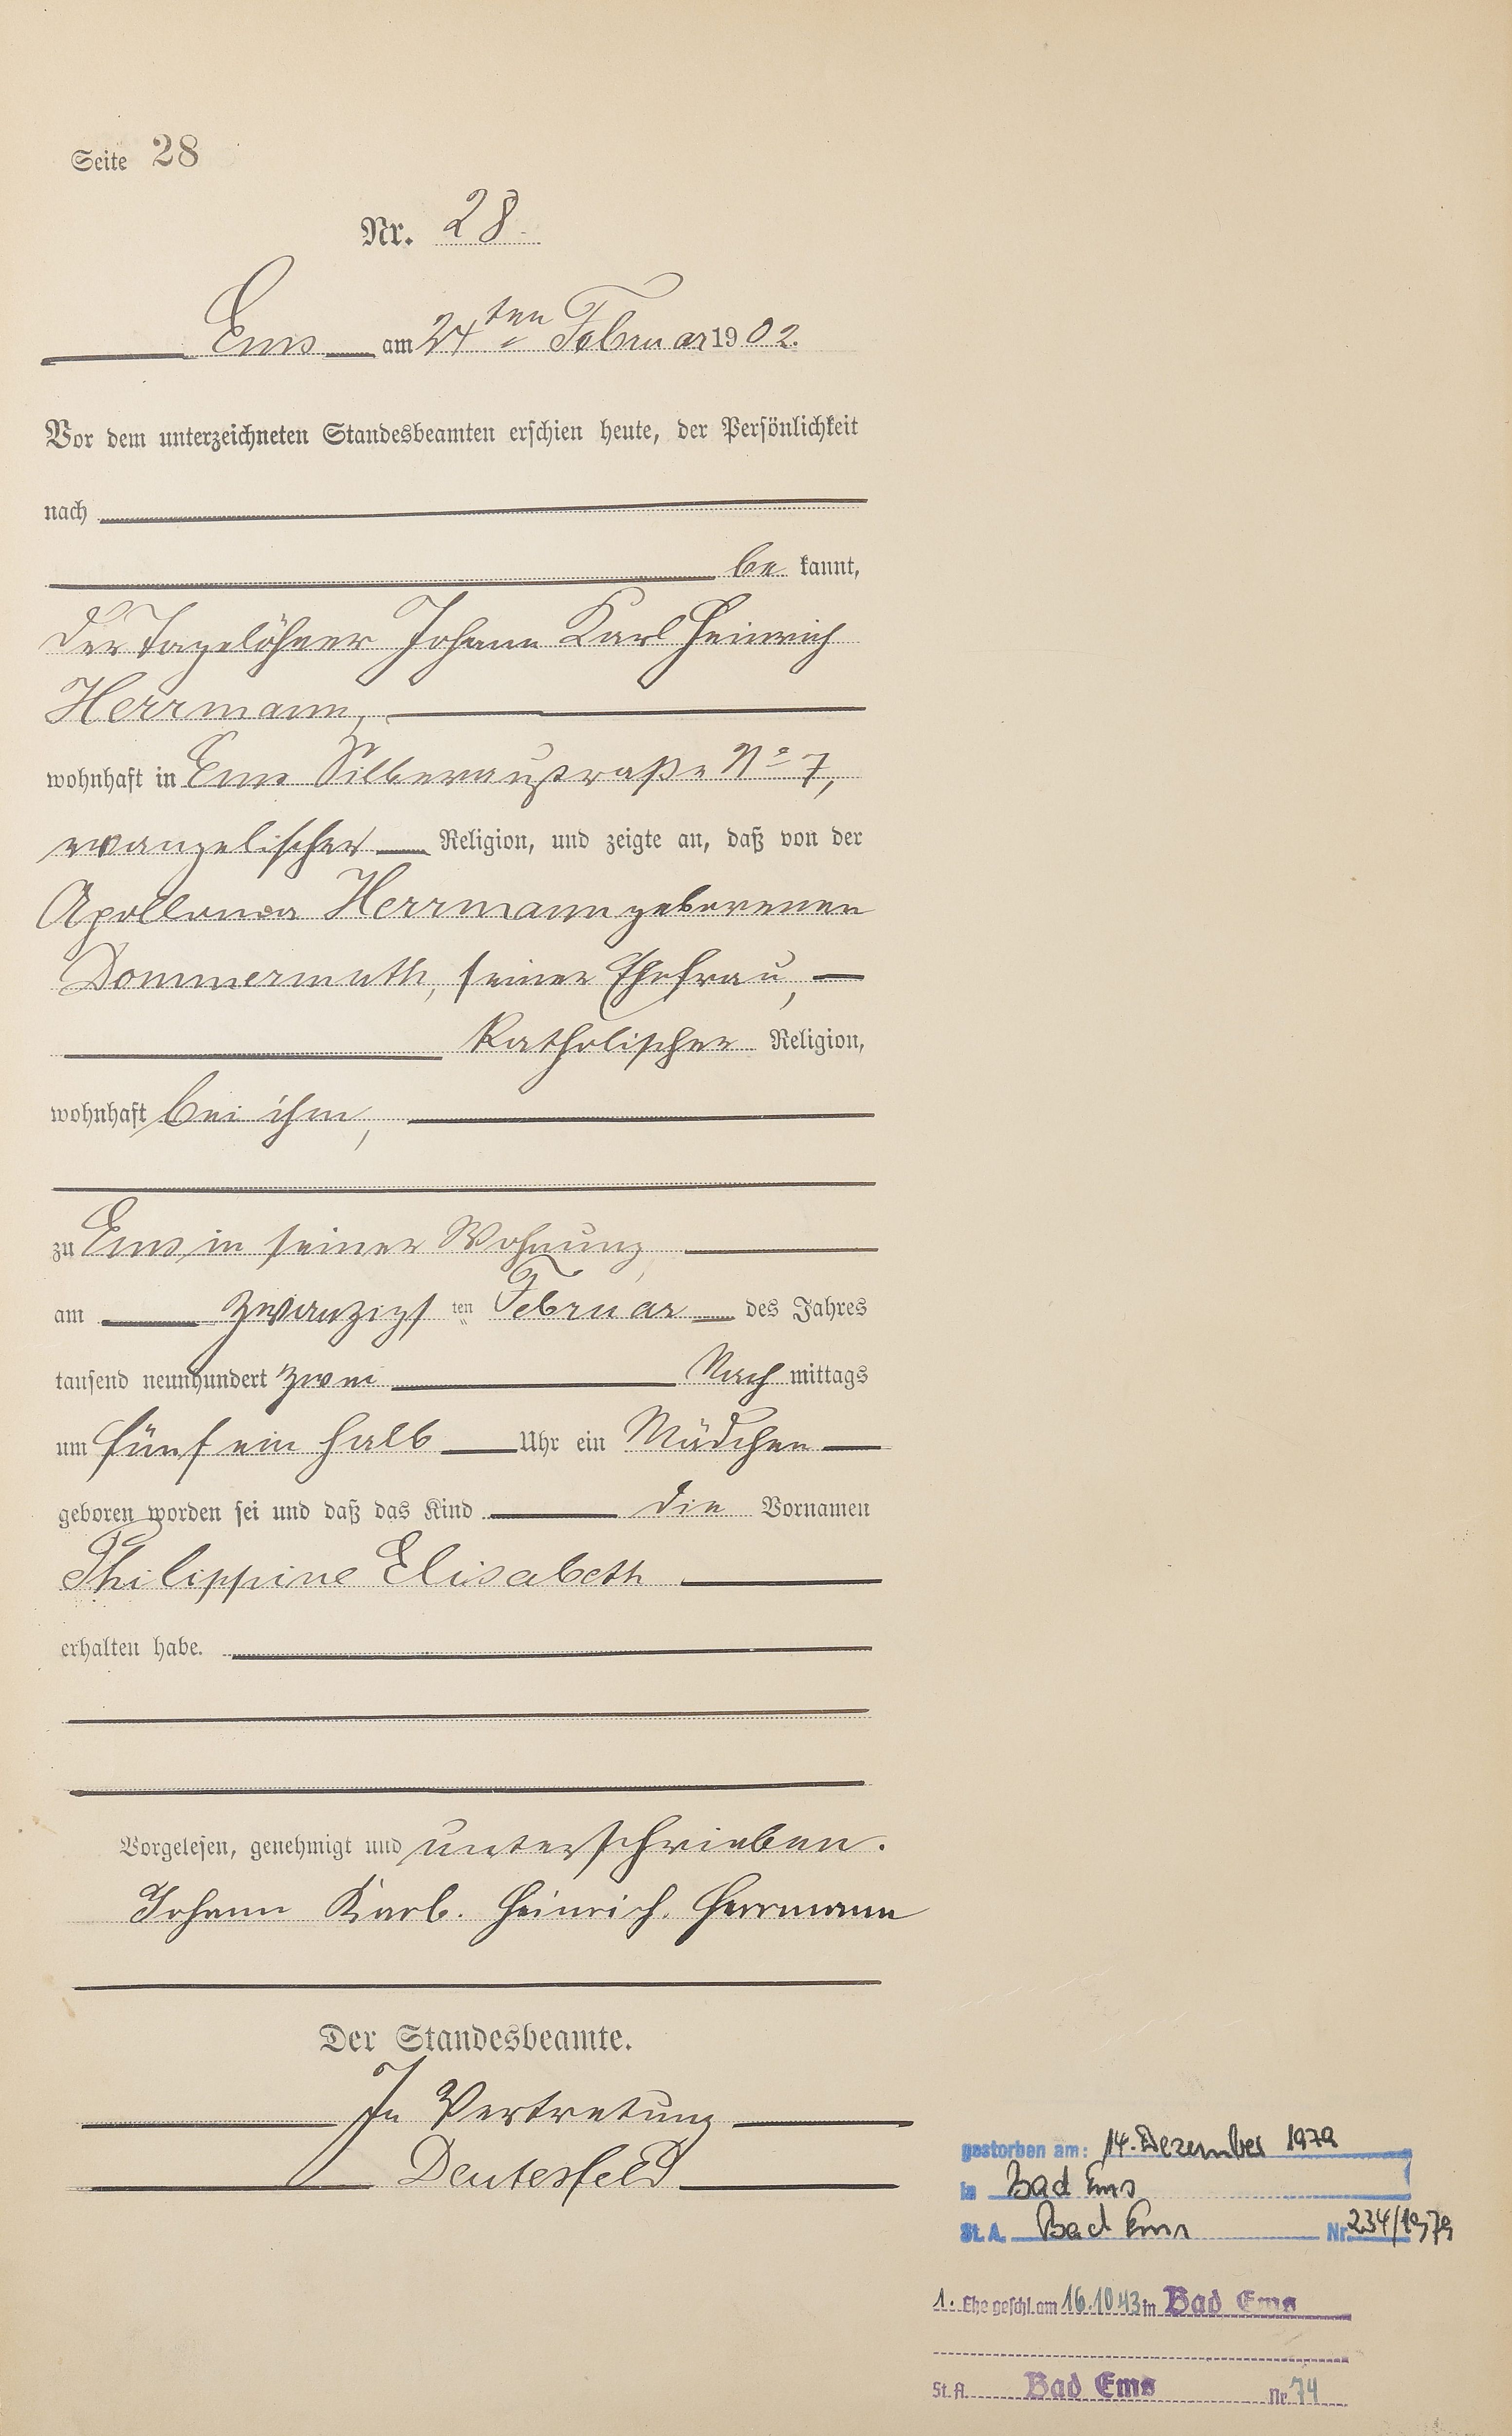 Seite 28
Nr. 28.
Ems am 24ten Februar 1902.
Vor dem unterzeichneten Standesbeamten erschien heute, der Persönlichkeit
nach
be kannt,
der Tagelöhner Johann Karl Heinrich
Herrmann,
wohnhaft in Ems Silberaustraße No 7,
evangelischer Religion, und zeigte an, daß von der
Apollonia Herrmann geborenen
Dommermuth, seiner Ehefrau,
katholischer Religion,
wohnhaft bei ihm,
zu Ems in seiner Wohnung,
am zwanzigst ten Februar des Jahres
tausend neunhundert zwei Nach mittags
um fünf ein halb Uhr ein Mädchen
geboren worden sei und daß das Kind die Vornamen
Philippine Elisabeth
erhalten habe.
Vorgelesen, genehmigt und unterschrieben.
Johann Karl. Heinrich. Herrmann
Der Standesbeamte.
In Vertretung
Deutesfeld
gestorben am: 14. Dezember 1979
in Bad Ems
St. A. Bad Ems Nr. 234/1979
1. Ehe geschl. am 16.10.43 in Bad Ems
St. A. Bad Ems Nr. 74